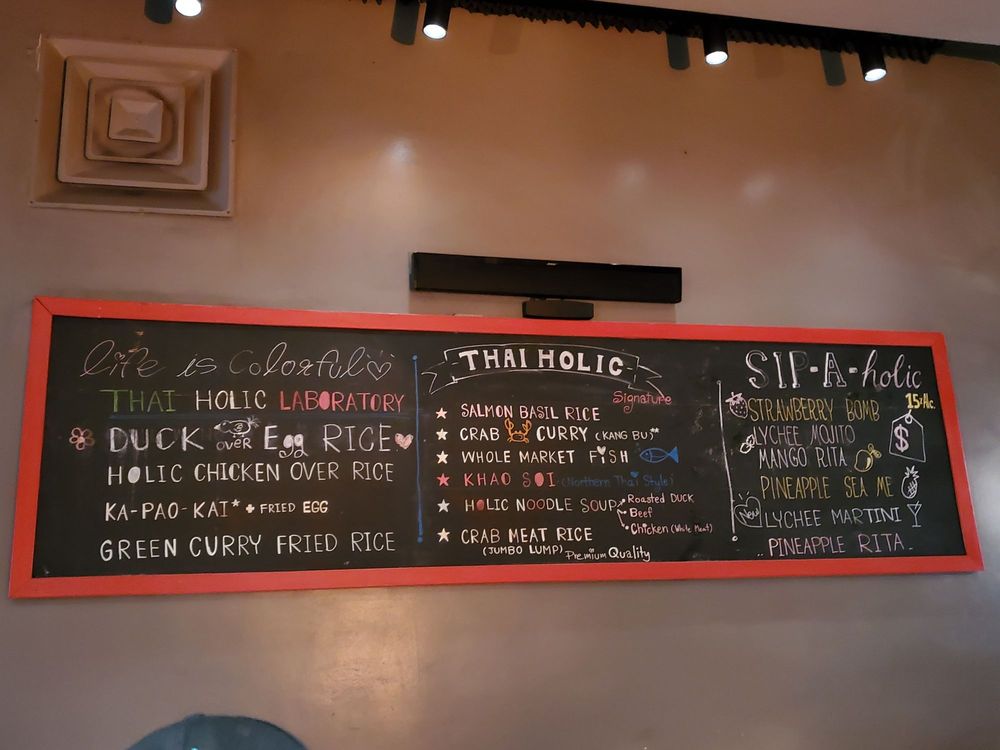 Life is Colorful
THAI HOLIC LABORATORY
DUCK OVER Egg RICE
HOLIC CHICKEN OVER RICE
KA-PAO-KAI* + FRIED EGG
GREEN CURRY FRIED RICE
THAI HOLIC
Signature
SALMON BASIL RICE
CRAB CURRY (KANG BU)**
WHOLE MARKET FISH
KHAO SOI (Northern Thai Style)
HOLIC NOODLE SOUP
Roasted DUCK
Beef
Chicken (White Meat)
CRAB MEAT RICE
(JUMBO LUMP) Premium Quality
SIP-A-holic
15+Ac.
$
STRAWBERRY BOMB
LYCHEE MOJITO
MANGO RITA
PINEAPPLE SEA ME
New LYCHEE MARTINI
PINEAPPLE RITA